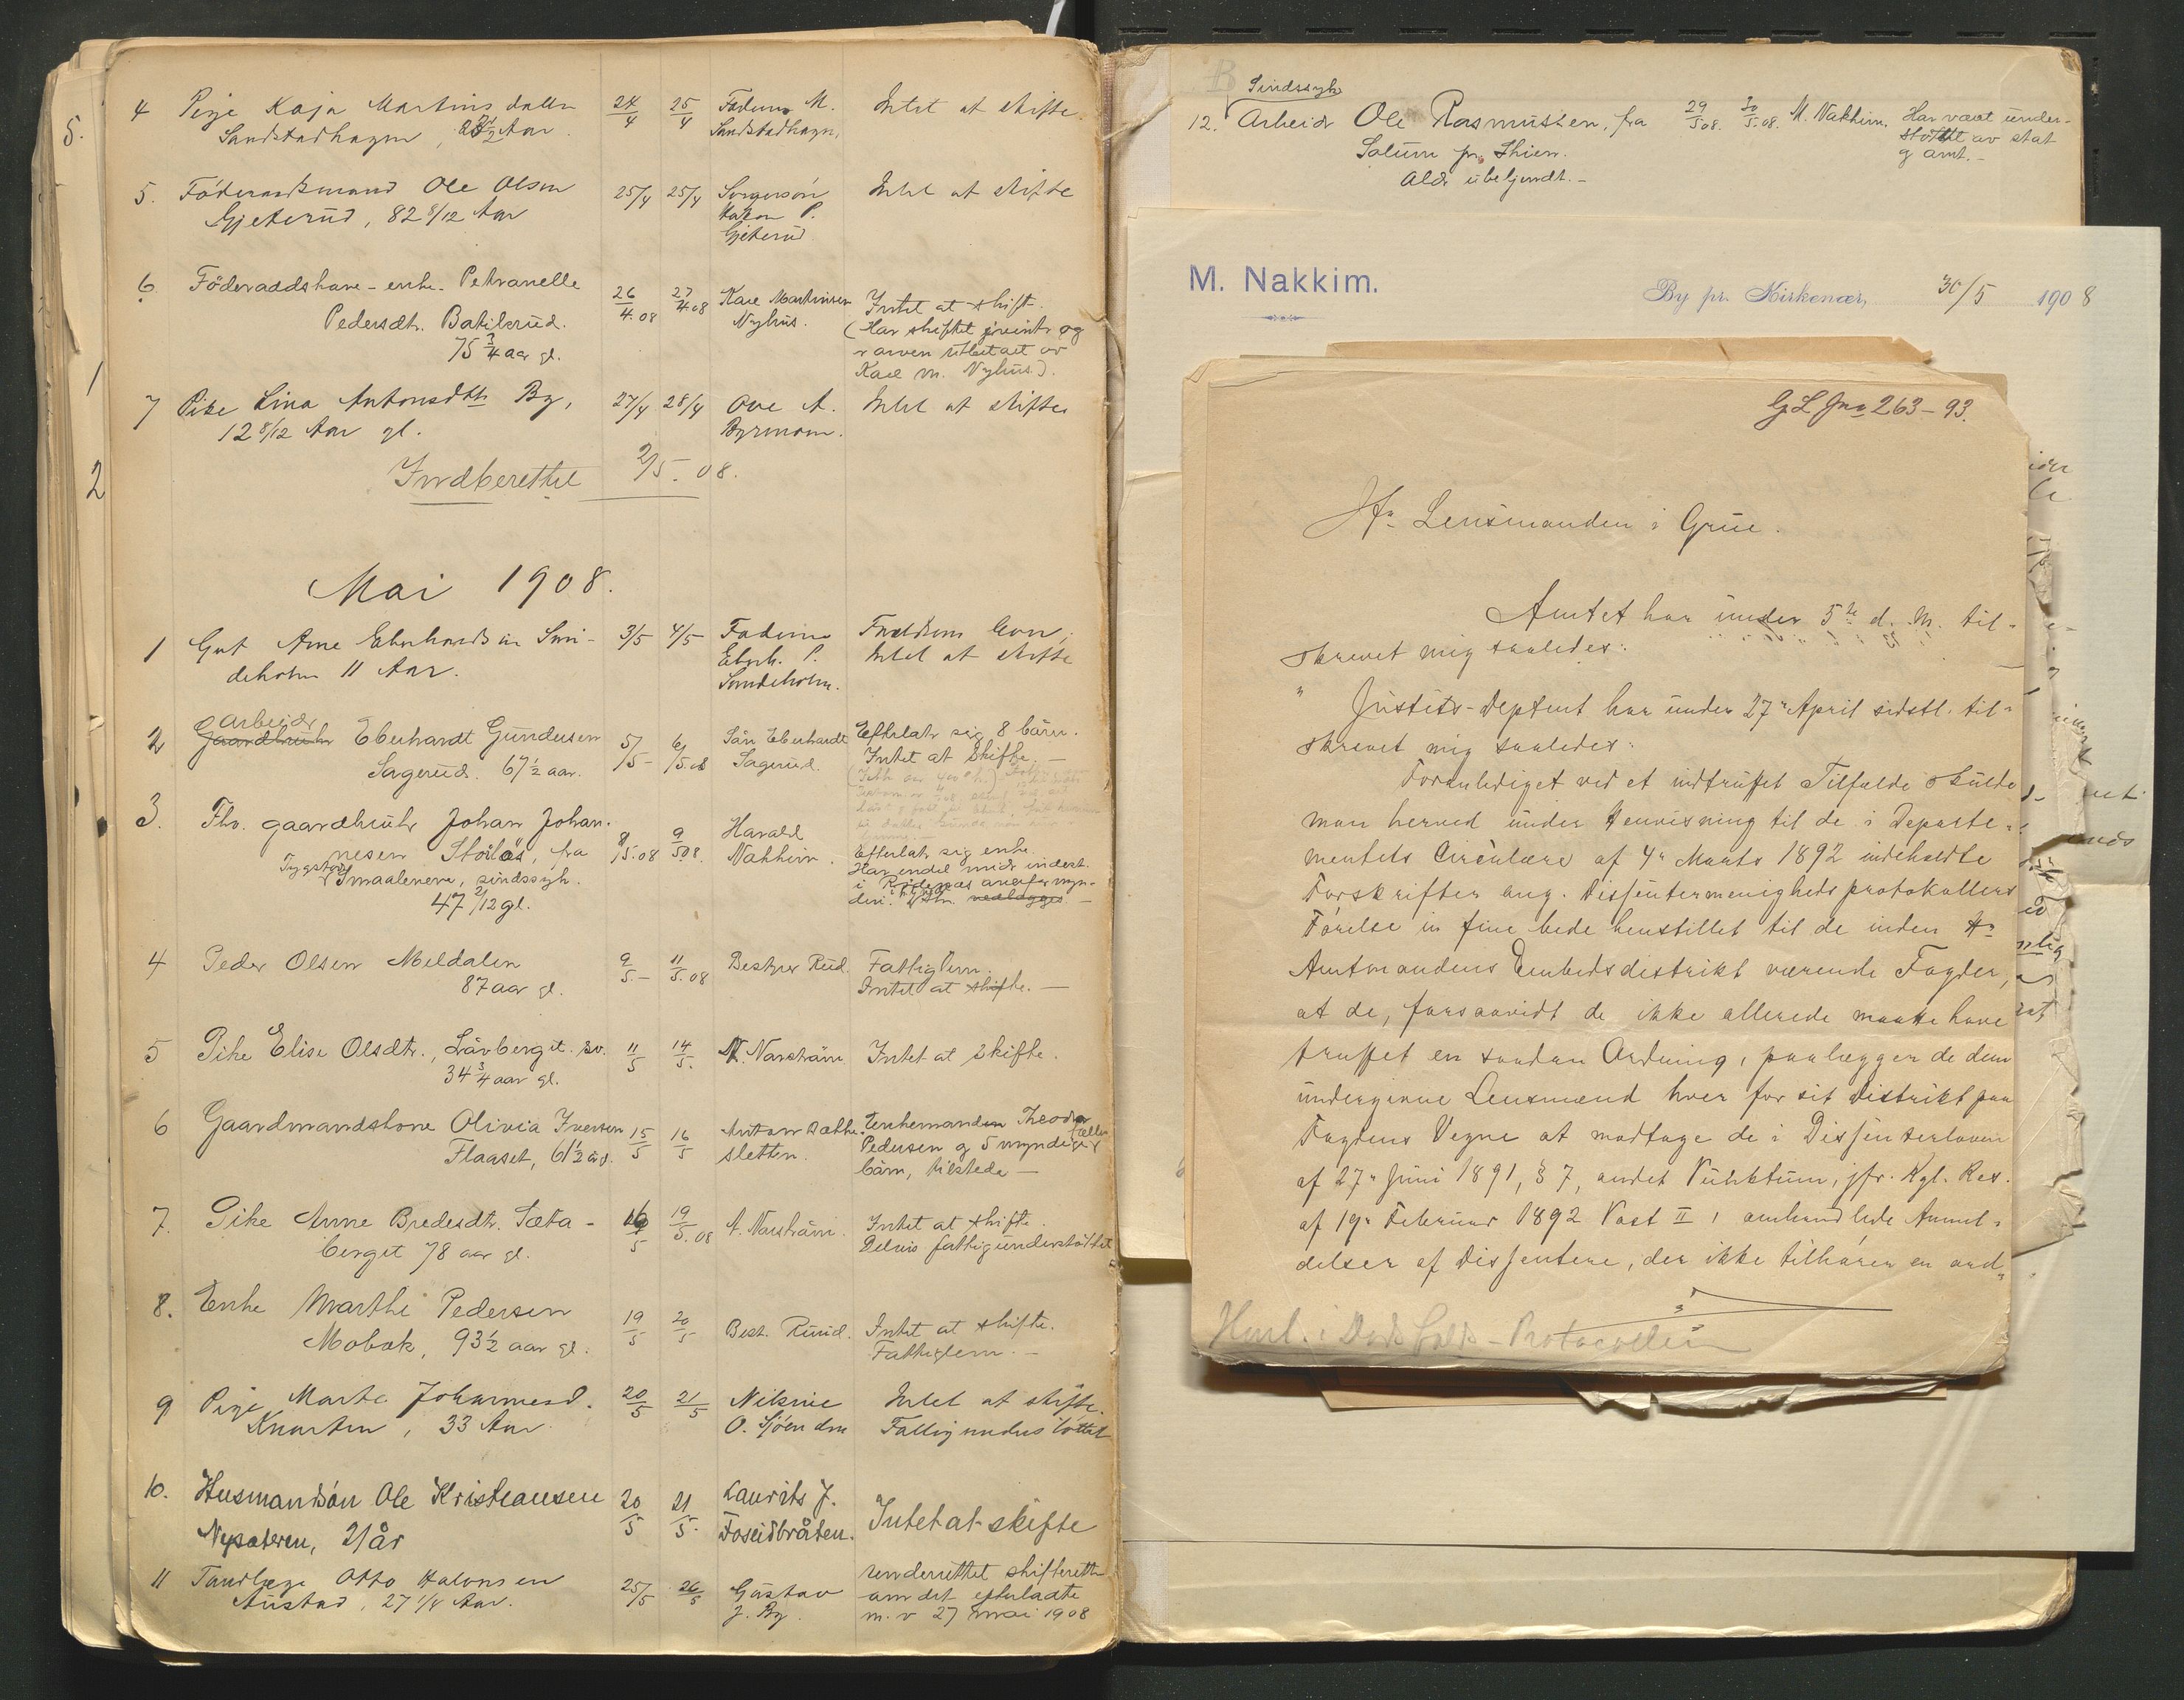 5.
4 Pige Kaja Martinsdatter 24/4 25/4 Faderen M. Intet at skifte.
Sandstadhagen, Aar Sandstadhagen,
5. Föderaadsmand Ole Olsen 25/4 25/4 Intet at skifte
Gjeterud, 82 8/12 Aar Håkon P.
Gjeterud
6. Föderaadshave-enke Petranelle 26/4.08 27/4.08 Kare Martinsen Intet at skift-
Pedersdtr. Batilsrud. Nyhus. (Har skiftet
75 3/4 aar gl. arven utbetalt av
Kare M. Nyhus).
1
7 Pike Lina Antonsdtr By, 27/4 28/4 Ove A. Intet at skifte
12 8/12 Aar gl. Byrmoen.
2
Indberettet 2/5.08.
Mai 1908.
1 Gut Arne Eberhardsen Smi- 3/5 4/5 Faderen Forældrene lever,
deholm 11 Aar. Eberh. P. Intet at skifte
Smideholm.
Arbeider
2 Gaardbruker Eberhardt Gundersen 5/5- 6/5.08 Sön Eberhardt Efterlater sig 8 börn.
Sagerud. 67 1/2 aar. Sagerud. Intet at skifte. -
3. Fhv. gaardbruker Johan Johan- 8/5.08 9/5.08 Harald
nesen Storlös, fra Nakkim. Efterlater sig enke.
Trygstad Smaalenene, sindssyk. Har endel midr indest.
47 2/12 gl. i
4 Peder Olsen Meldalen 9/5.- 11/5.08 Bestyrer Rud. Fattiglem.
87 aar gl. Intet at skifte. -
5 Pike Elise Olsdtr., Lövberget. sv. 11/5 14/5. N. Narström Intet at skifte.
34 3/4 aar gl.
6 Gaardmandskone Olivia Iversen 15/5 16/5 Anton Sætte- Enkemanden Theodor
Flaaset, 61 1/2 år. sletten. Pedersen og 5 myndige
börn, tilstede -
7. Pike Anne Bredesdtr. Sæta- 16/5 19/5.08 A. Narström. Intet at skifte.
berget 78 aar gl. Delvis fattigunderstöttet
8. Enke Marthe Pedersen 19/5 20/5 Best. Ruud. Intet at skifte.
Mobæk, 93 1/2 aar gl. Fattiglem. -
9 Pige Marte Johannesd. 20/5 21/5 Nilsine Intet at skifte.
Knarten, 33 Aar O. Sjöenden Fattigunderstöttet
10. Husmandsön Ole Kristiansen 20/5 21/5. Laurits J. Intet at skifte
Nysæteren, 21 år Fosseidbråten.
11 Tandlæge Otto Halvorsen 25/5 26/5 Gustav underrettet skifteretten
Austad, 27 1/4 Aar. J. By. om det efterladte
m. v 27 mai 1908
Sindssyk
12. Arbeidr Ole Rasmussen, fra 29/5 08. 30/5.08. M. Nakkim. Har været under-
Solum pr. Skien. stöttet av stat
Aldr ubekjendt. - og amt. -
M. Nakkim.
By pr. Kirkenær, 30/5 1908
GL Jno 263-93.
Hr. Lensmanden i Grue.
Amtet har under 5te d. M. til-
skrevet mig saaledes:
" Justits-Deptent har under 27de April sidstl. til-
skrevet mig saaledes:
Foranlediget ved et indtruffet Tilfælde skulde
man herved under Henvisning til de i Departe-
mentets Circulære af 4de Marts 1892 indeholdte
Forskrifter ang. Dissentermenighedsprotokollers
Förelse in fine bede henstillet til de inden Hr
Amtmandens Embedsdistrikt værende Fogder,
at de, forsaavidt de ikke allerede maatte have
truffet en saadan Ordning, paalægger de dem
undergivne Lensmænd hver for sit Distrikt paa
Fogdens Vegne at modtage de i Dissenterloven
af 27de Juni 1891, § 7, andet Punktum, jfr. Kgl. Res.
af 19de Februar 1892 Post II, omhandlede Anmel-
delser af Dissentere, der ikke tilhører en ord-
Henl. i Dødsfalds-Protocollen